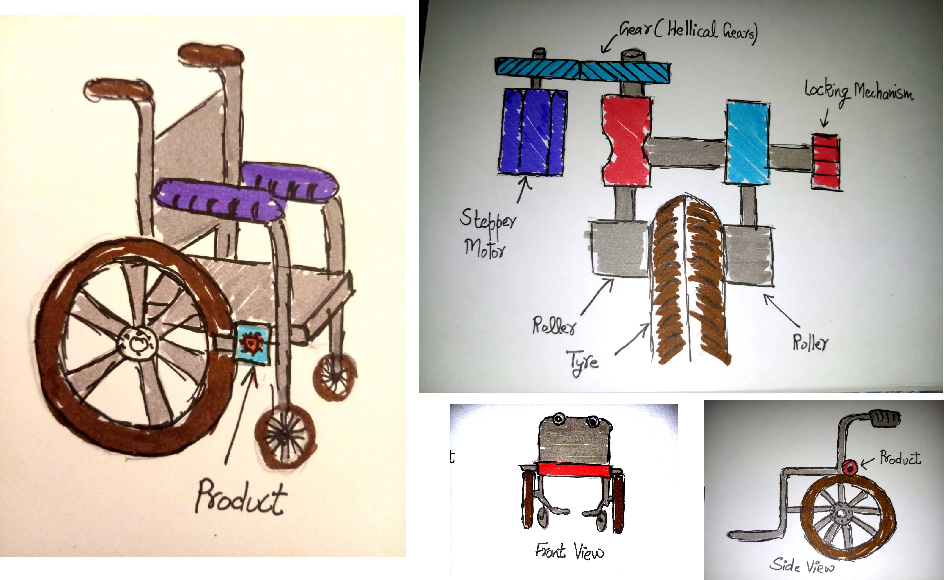 Product
Gear (Hellical Gears)
Locking Mechanism
Stepper
Motor
Roller
Tyre
Roller
t
Front View
Product
Side View